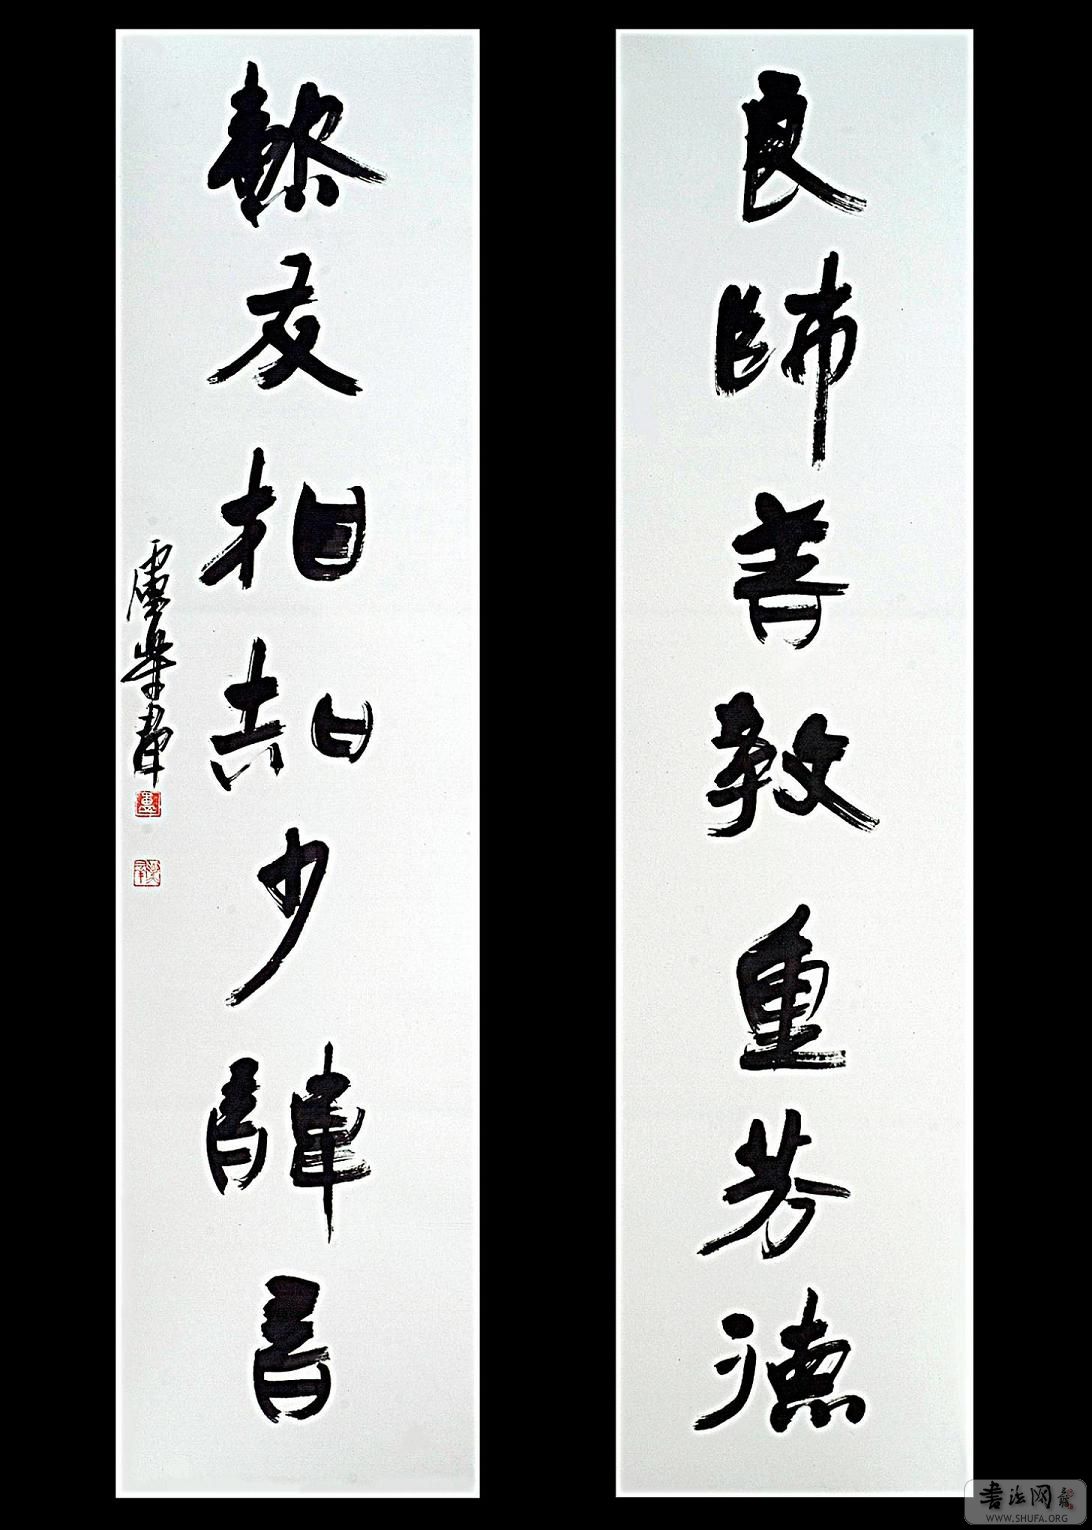 良師善教重芳德
摯友相知少諱言
書法网
WWW.SHUFA.ORG